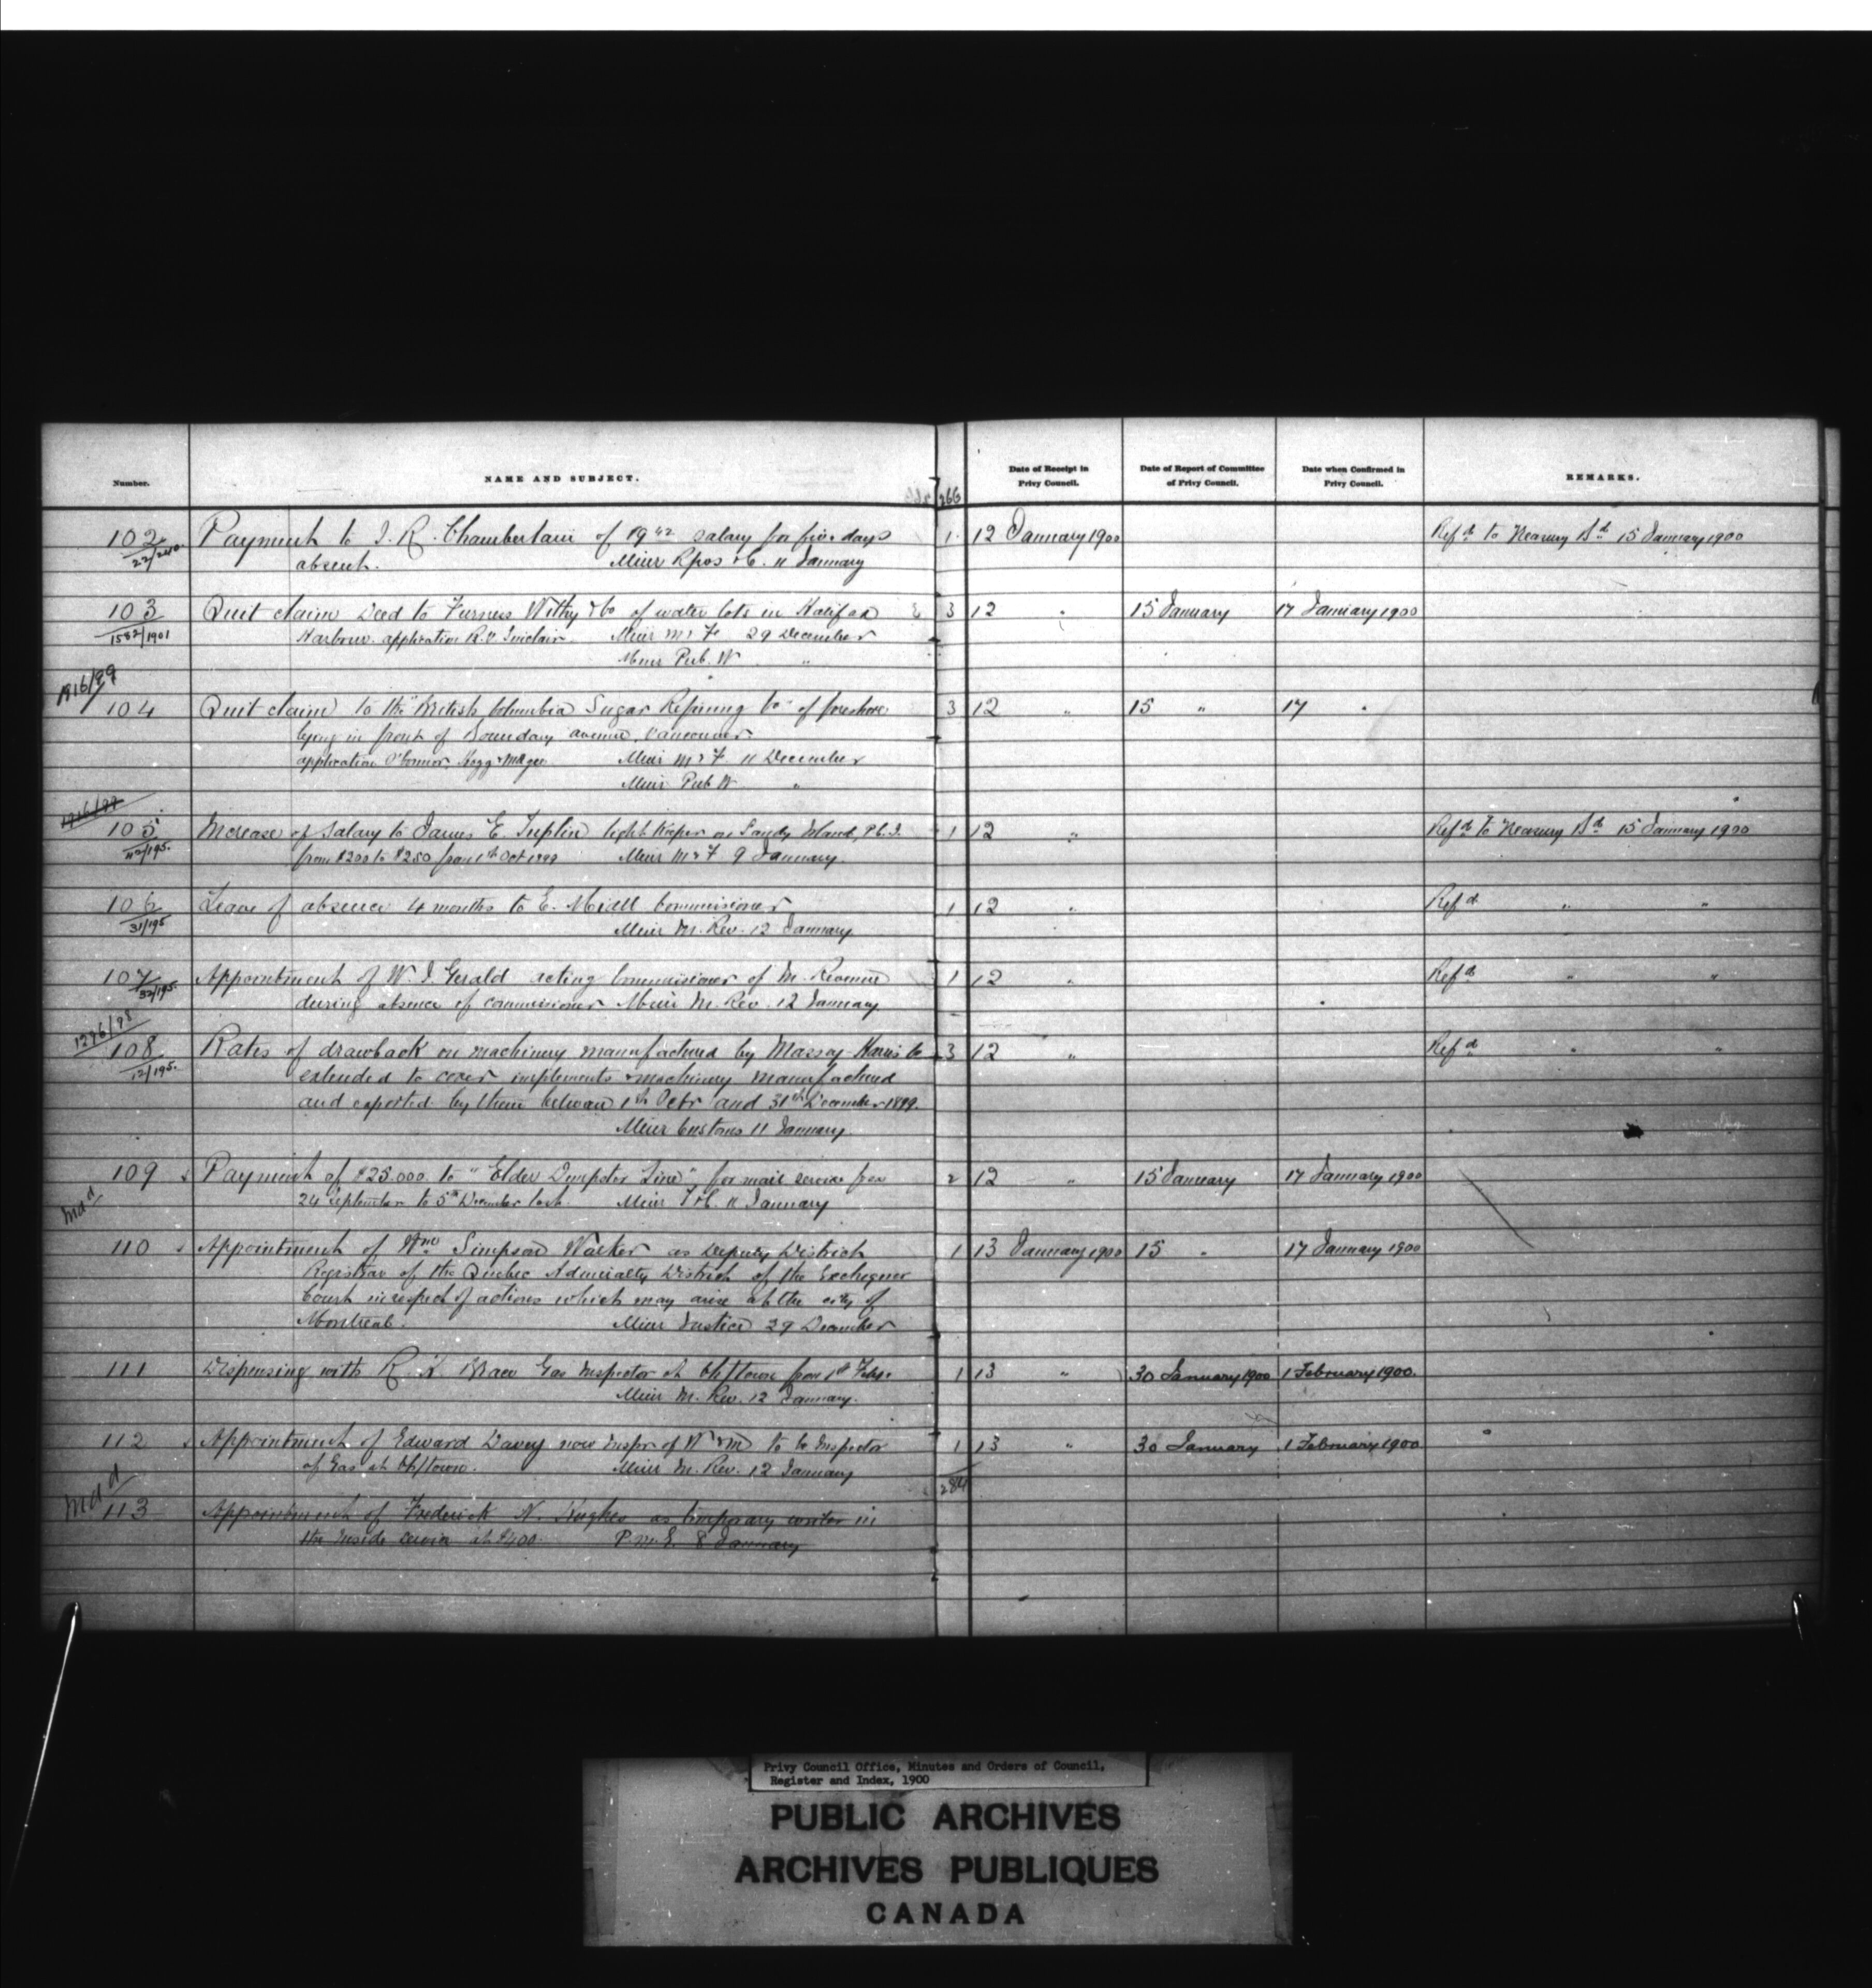 Number.
NAME AND SUBJECT.
266
Date of Receipt in
Privy Council.
Date of Report of Committee
of Privy Council.
Date when Confirmed in
Privy Council.
REMARKS.
102 Payment to J. R. Chamberlain of 19 42 salary for five days 1 12 January 1900 Refd to Treasury Bd 15 January 1900
22/240. absent. 11 January
103 Quit claim Deed to Furness Withy & Co of water lots in Halifax 3 12 " 15 January 17 January 1900
1582/1901 Harbour. application R.V. Sinclair. Minr M & F 29 December
Minr Pub. W "
1916/99
104 Quit claim to the British Columbia Sugar Refining Co of foreshore 3 12 " 15 " 17 "
lying in front of Boundary avenue, Vancouver
application O'Connor, Hogg & Magee Minr M & F 11 December
Minr Pub W "
1916/99
105 Increase of salary to James E. Tuplin light keeper on Sandy Island, P.E.I. 1 12 " Refd to Treasury Bd 15 January 1900
42/195. from $200 to $250 from 1st Oct 1899 Minr M & F 9 January.
106 Leave of absence 4 months to E. Miall Commissioner 1 12 " Refd " "
31/195 Minr In. Rev. 12 January
107 Appointment of W. J. Gerald acting Commissioner of In. Revenue 1 12 " Refd " "
32/195. during absence of commissioner Minr In. Rev. 12 January
1296/98
108 Rates of drawback on machinery manufactured by Massey-Harris Co 3 12 " Refd " "
12/195. extended to cover implements & machinery manufactured
and exported by them between 1st Octr and 31st December 1899.
Minr Customs 11 January.
109 Payment of $25.000. to "Elder Dempster Line" for mail service from 2 12 " 15 January 17 January 1900
24 September to 5th December last. Minr T & C. 11 January
110 Appointment of Wm Simpson Walker as Deputy District 1 13 January 1900 15 " 17 January 1900
Registrar of the Quebec Admiralty District of the Exchequer
Court in respect of actions which may arise at the city of
Montreal. Minr Justice 29 December
111 Dispensing with R. R. Gas Inspector at Ch/town from 1st Feby. 1 13 " 30 January 1900 1 February 1900.
Minr In. Rev. 12 January.
112 Appointment of Edward Davey now Inspr of W & M to be Inspector 1 13 " 30 January 1 February 1900
of Gas at Ch/town. Minr In. Rev. 12 January
284
113 Appointment of Frederick N. Hughes as temporary writer in
the Inside service at $400. P.M.G. 8 January
Privy Council Office, Minutes and Orders of Council,
Register and Index, 1900
PUBLIC ARCHIVES
ARCHIVES PUBLIQUES
CANADA